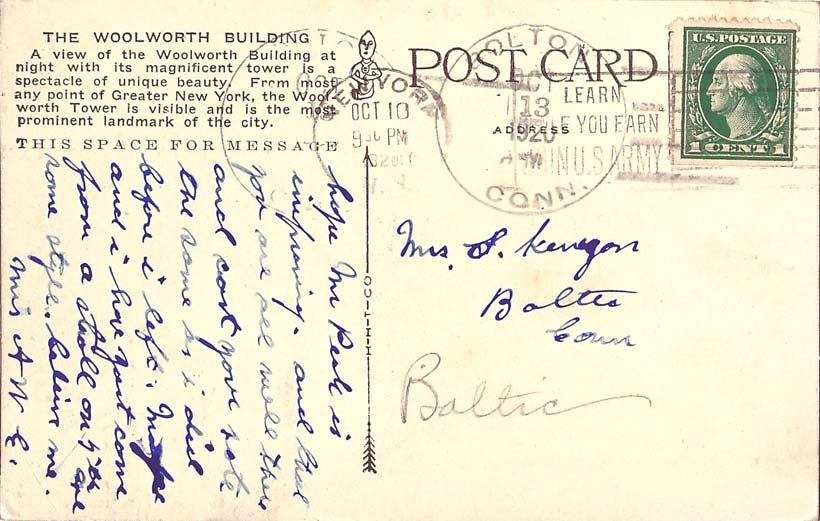 THE WOOLWORTH BUILDING
A view of the Woolworth Building at
night with its magnificent tower is a
spectacle of unique beauty. From most
any point of Greater New York, the Wool-
worth Tower is visible and is the most
prominent landmark of the city.
THIS SPACE FOR MESSAGE
POST CARD
ADDRESS
NEW YORK
OCT 10
9 30 PM
1920
COLTON
OCT
13
1920
CONN.
LEARN
YOU EARN
IN U.S. ARMY
U.S. POSTAGE
1 CENT 1
H-H-T-CO
hope Mr Peck is
improving. and that
you are all well there
and cast your vote
the same as i did
before i left.
and i have just come
from a stroll on 5th ave
some style. believe me.
Mrs A W E.
Mrs. S. Kenyon
Baltic
Conn
Baltic